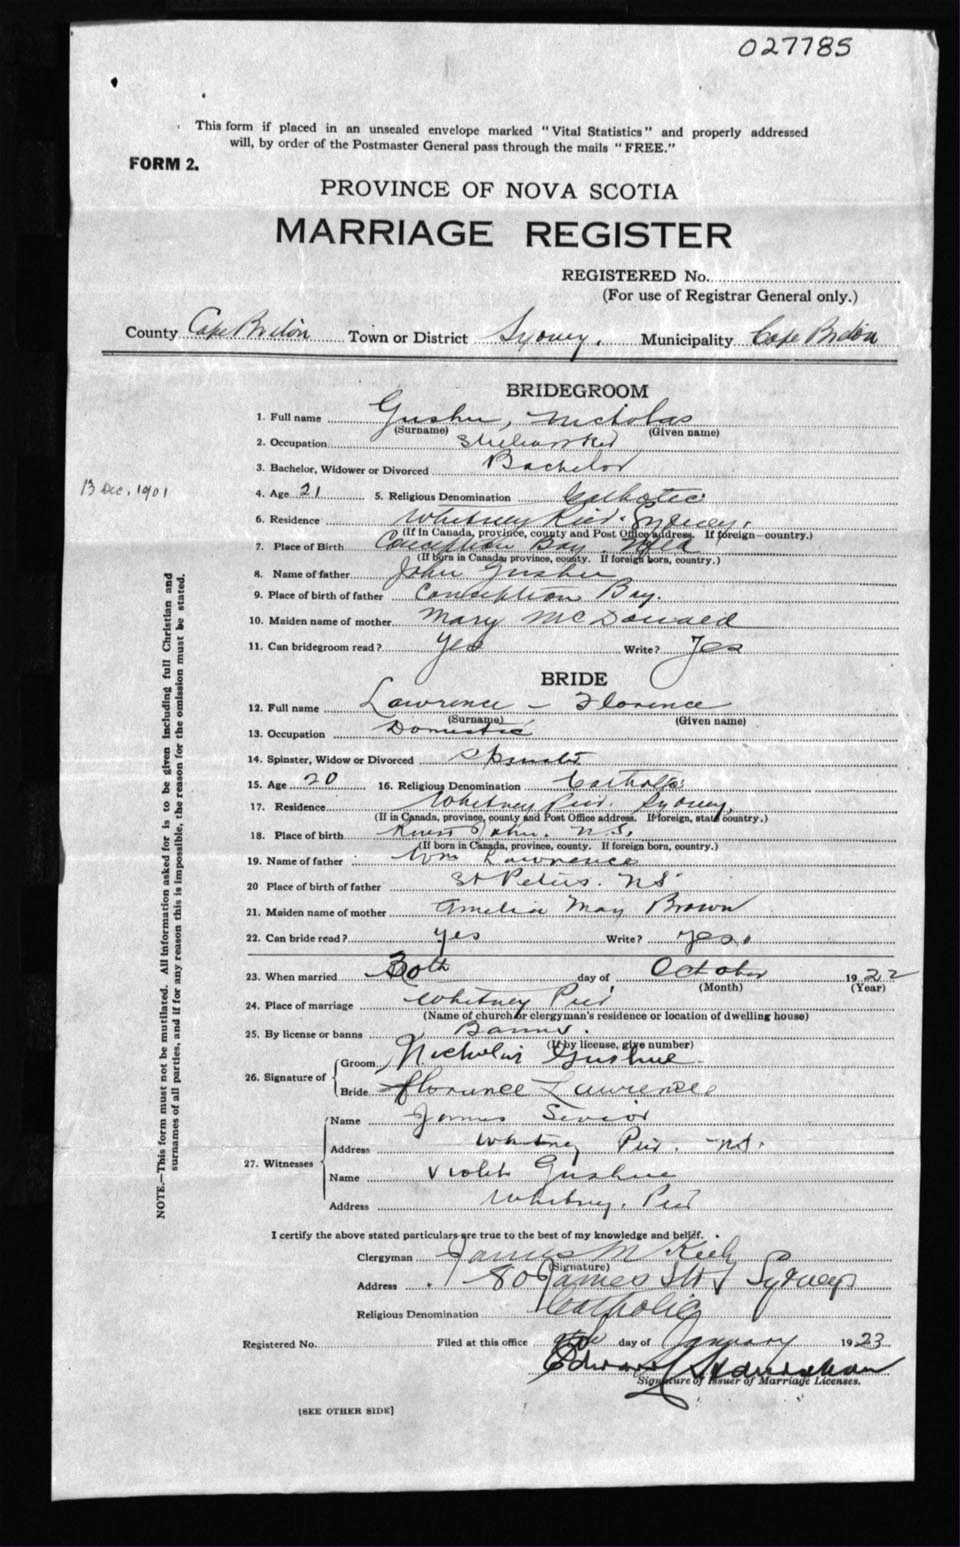 027785
This form if placed in an unsealed envelope marked "Vital Statistics" and properly addressed
will, by order of the Postmaster General pass through the mails "FREE."
FORM 2.
PROVINCE OF NOVA SCOTIA
MARRIAGE REGISTER
REGISTERED No.
(For use of Registrar General only.)
County Cape Breton Town or District Sydney. Municipality Cape Breton
BRIDEGROOM
1. Full name Gushue, Nicholas
(Surname) (Given name)
2. Occupation Steelworker
3. Bachelor, Widower or Divorced Bachelor
13 Dec, 1901
4. Age 21 5. Religious Denomination Catholic
6. Residence Whitney Pier. Sydney.
(If in Canada, province, county and Post Office address. If foreign—country.)
7. Place of Birth Conception Bay Nfld
(If born in Canada, province, county. If foreign born, country.)
8. Name of father John Gushue
9. Place of birth of father Conception Bay.
10. Maiden name of mother Mary McDonald
11. Can bridegroom read? Yes Write? Yes
BRIDE
12. Full name Lawrence - Florence
(Surname) (Given name)
13. Occupation Domestic
14. Spinster, Widow or Divorced Spinster
15. Age 20 16. Religious Denomination Catholic
17. Residence Whitney Pier. Sydney.
(If in Canada, province, county and Post Office address. If foreign, state country.)
18. Place of birth River John. N.S.
(If born in Canada, province, county. If foreign born, country.)
19. Name of father Wm Lawrence
20 Place of birth of father St Peters. NS
21. Maiden name of mother Amelia May Brown
22. Can bride read? Yes Write? Yes.
23. When married 30th day of October 1922
(Month) (Year)
24. Place of marriage Whitney Pier
(Name of church or clergyman's residence or location of dwelling house)
25. By license or banns Banns.
(If by license, give number)
26. Signature of
Groom Nicholas Gushue
Bride Florence Lawrence
27. Witnesses
Name James
Address Whitney Pier. NS.
Name Violet Gushue
Address Whitney. Pier
I certify the above stated particulars are true to the best of my knowledge and belief.
Clergyman James M
(Signature)
Address 80 James St Sydney
Religious Denomination Catholic
Registered No. Filed at this office day of January 1923
Edward
Signature of Issuer of Marriage Licenses.
[SEE OTHER SIDE]
NOTE.—This form must not be mutilated. All information asked for is to be given including full Christian and
surnames of all parties, and if for any reason this is impossible, the reason for the omission must be stated.